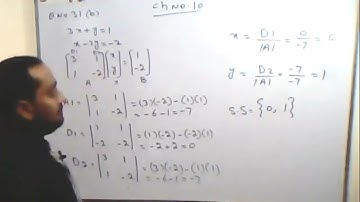 Ch No. 10
Q No: 31 (b)
3x + y = 1
x - 2y = -2
[3 1
1 -2] [x
y] = [1
-2]
A B
|A| = |3 1
1 -2| = (3)(-2) - (1)(1)
= -6 - 1 = -7
D1 = |1 1
-2 -2| = (1)(-2) - (-2)(1)
= -2 + 2 = 0
D2 = |3 1
1 -2| = (3)(-2) - (1)(1)
= -6 - 1 = -7
x = D1/|A| = 0/-7 = 0
y = D2/|A| = -7/-7 = 1
S.S = {0, 1}